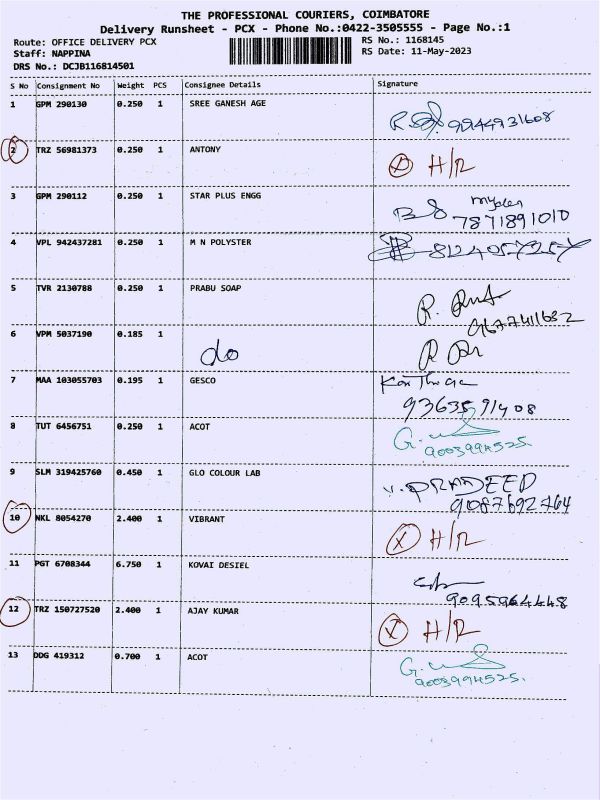 THE PROFESSIONAL COURIERS, COIMBATORE
Delivery Runsheet - PCX - Phone No.:0422-3505555 - Page No.:1
Route: OFFICE DELIVERY PCX
RS No.: 1168145
Staff: NAPPINA
RS Date: 11-May-2023
DRS No.: DCJB116814501
S No Consignment No Weight PCS Consignee Details Signature
1 GPM 290130 0.250 1 SREE GANESH AGE
9944931608
2 TRZ 56981373 0.250 1 ANTONY
X H/R
3 GPM 290112 0.250 1 STAR PLUS ENGG
7871891010
4 VPL 942437281 0.250 1 M N POLYSTER
5 TVR 2130788 0.250 1 PRABU SOAP
9677411632
6 VPM 5037190 0.185 1
do
7 MAA 103055703 0.195 1 GESCO
9363591408
8 TUT 6456751 0.250 1 ACOT
9003994525.
9 SLM 319425760 0.450 1 GLO COLOUR LAB
V. PRADEEP
9087692764
10 NKL 8054270 2.400 1 VIBRANT
X H/R
11 PGT 6708344 6.750 1 KOVAI DESIEL
9095964448
12 TRZ 150727520 2.400 1 AJAY KUMAR
X H/R
13 DDG 419312 0.700 1 ACOT
9003994525.